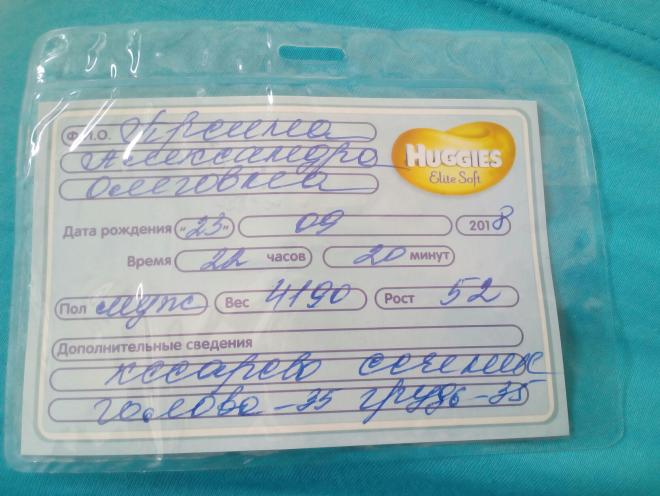 Ф.И.О. Арсина
Александра
Олеговна
HUGGIES
Elite Soft
Дата рождения "23" 09 2018
Время 22 часов 20 минут
Пол муж Вес 4190 Рост 52
Дополнительные сведения
кесарево сечение
голова - 35 грудь - 35